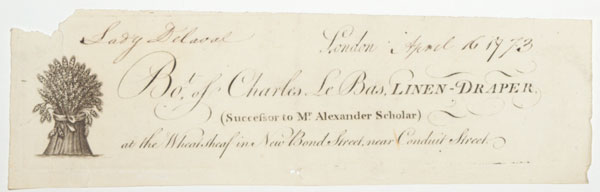 Lady Delaval London April 16 1773
Bo.t of Charles Le Bas, LINEN-DRAPER,
(Successor to Mr. Alexander Scholar)
at the Wheatsheaf in New Bond Street, near Conduit Street.